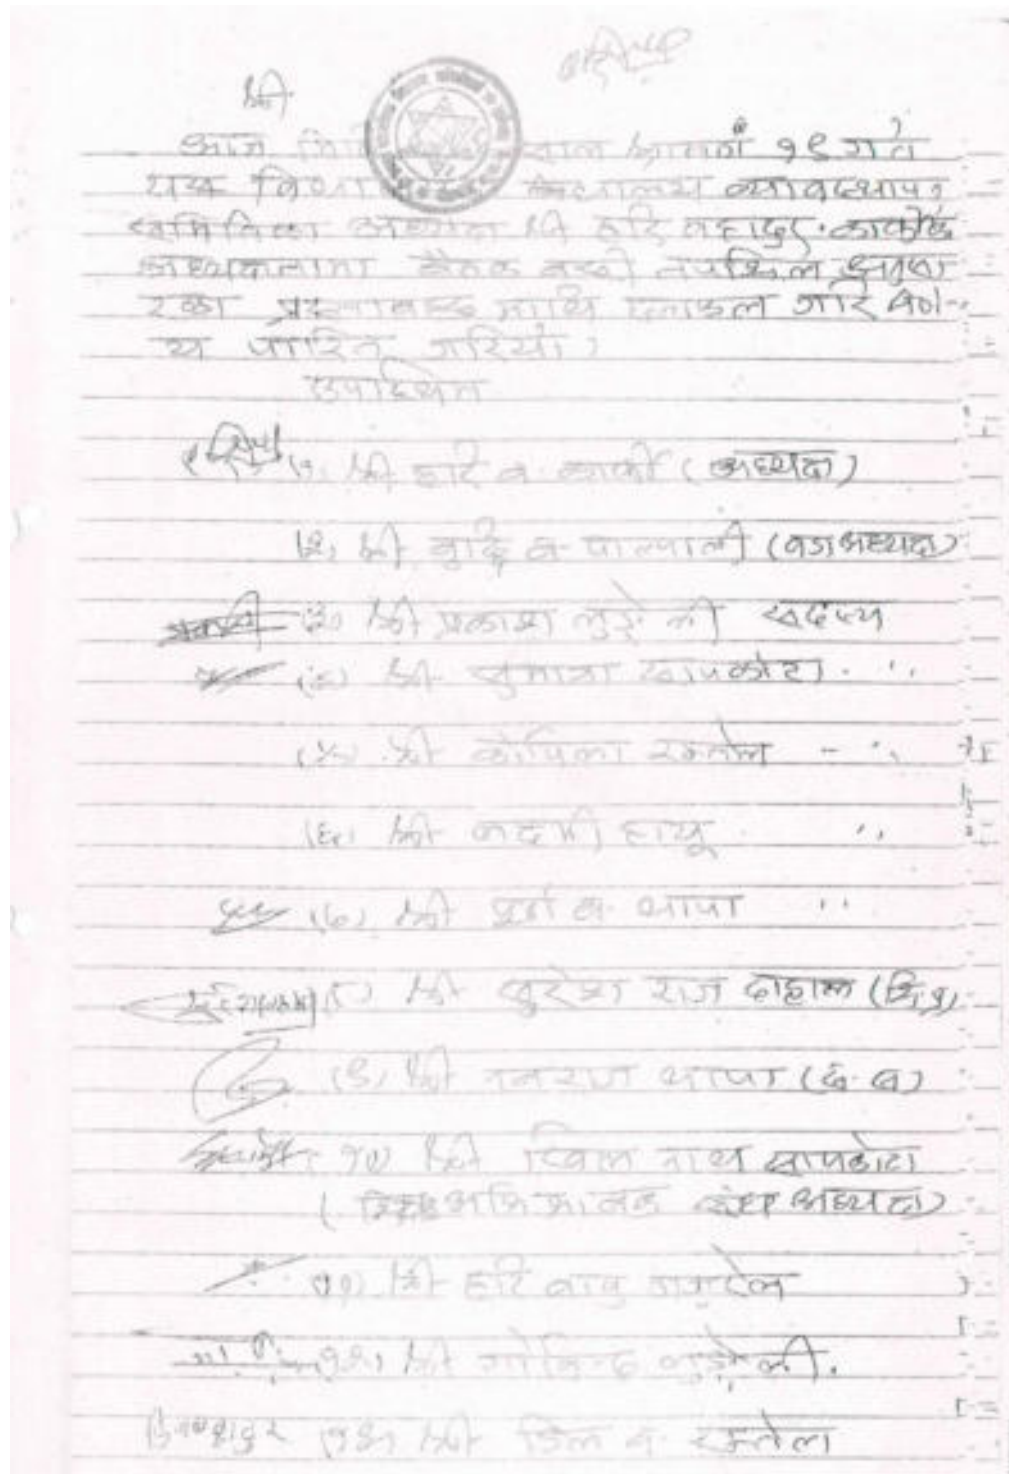 श्री
आज मि साल श्रावण १९ गते
यस विद्या विद्यालय व्यवस्थापन
समितिका अध्यक्ष श्री हरि बहादुर कार्कीको
अध्यक्षतामा बैठक बसी तपशिल अनुसा
रका प्रस्तावहरु माथि छलफल गरि निर्ण-
य पारित गरियो।
उपस्थित
(१) श्री हरि ब. कार्की (अध्यक्ष)
(२) श्री बुद्धि ब. पाल्पाली (वडाअध्यक्ष)
(३) श्री प्रकाश लुङ्गेली सदस्य
(४) श्री सुमित्रा सापकोटा. ''
(५) श्री कपिला रम्तेल - ''
(६) श्री हायू ''
(७) श्री पूर्ण ब. थापा ''
(८) श्री सुरेश राज दाहाल (शि.प्र)
(९) श्री नवराज थापा
१०) श्री नाथ सापकोटा
अभिभावक संघ अध्यक्ष)
११) श्री हरि बाबु
१२) श्री गोविन्द लुङ्गेली.
डिलबहादुर १३) श्री डिल ब. रम्तेल